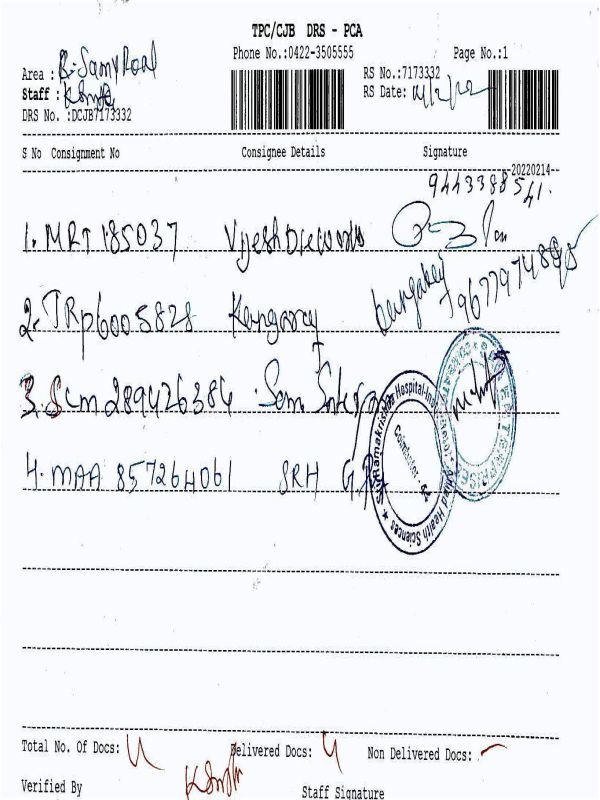 TPC/CJB DRS - PCA
Phone No.:0422-3505555
Page No.:1
Area : R. Samy Road
RS No.:7173332
Staff :
RS Date: 14/2/22
DRS No. :DCJB7173332
S No Consignment No Consignee Details Signature
--20220214--
9443388541.
1. MRT 185037 Vijesh
2. TRP6005828
9677974895
3. Scm 289426386 Som
4. MAA 857264061 SRH
Hospital
Allied Health Sciences
Coimbatore
Total No. Of Docs: 4 Delivered Docs: 4 Non Delivered Docs: -
Verified By Staff Signature